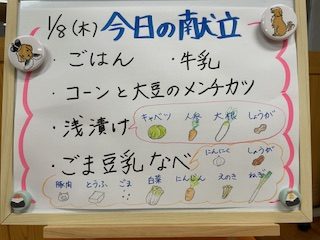 1/8(木) 今日の献立
・ごはん ・牛乳
・コーンと大豆のメンチカツ
・浅漬け キャベツ 人参 大根 しょうが
・ごま豆乳なべ にんにく しょうが
豚肉 とうふ ごま 白菜 にんじん えのき ねぎ